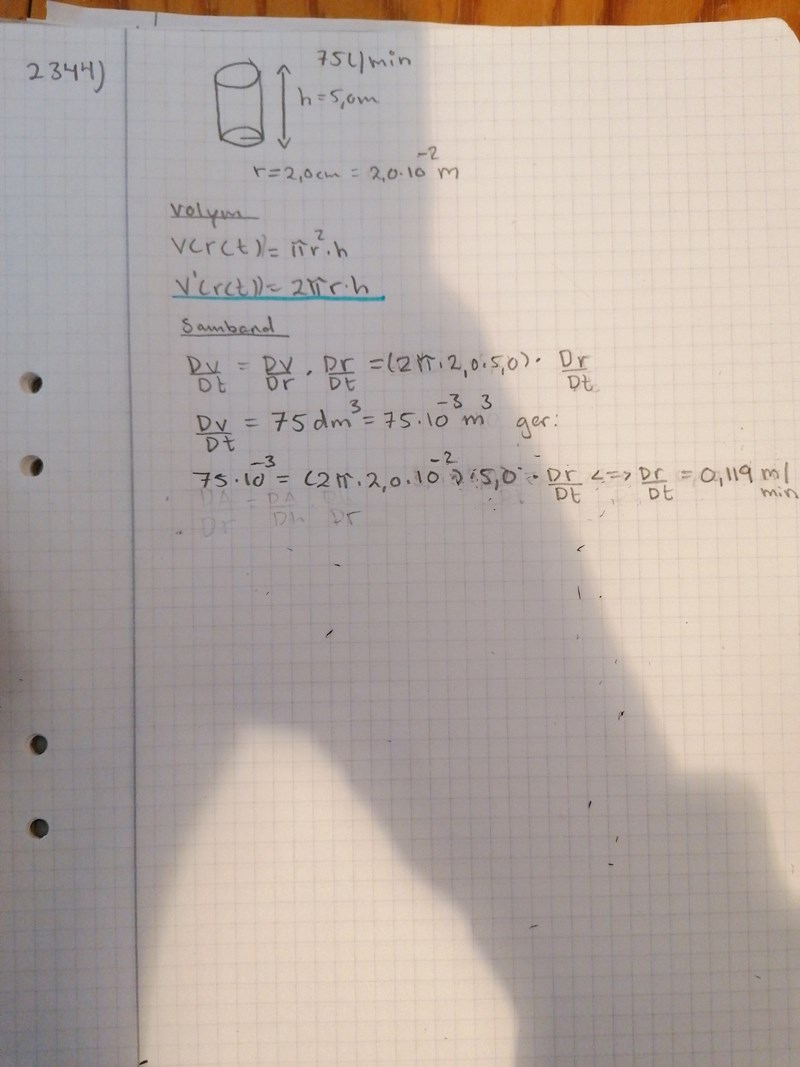 2344)
75L/min
h=5,0m
r=2,0cm = 2,0·10⁻² m
Volym
V(r(t))=πr²·h
V'(r(t))=2πr·h
Samband
Dv/Dt = Dv/Dr · Dr/Dt =(2π·2,0·5,0)· Dr/Dt
Dv/Dt = 75 dm³=75·10⁻³ m³ ger:
75·10⁻³= (2π·2,0·10⁻²)·5,0 · Dr/Dt <=> Dr/Dt = 0,119 m/min